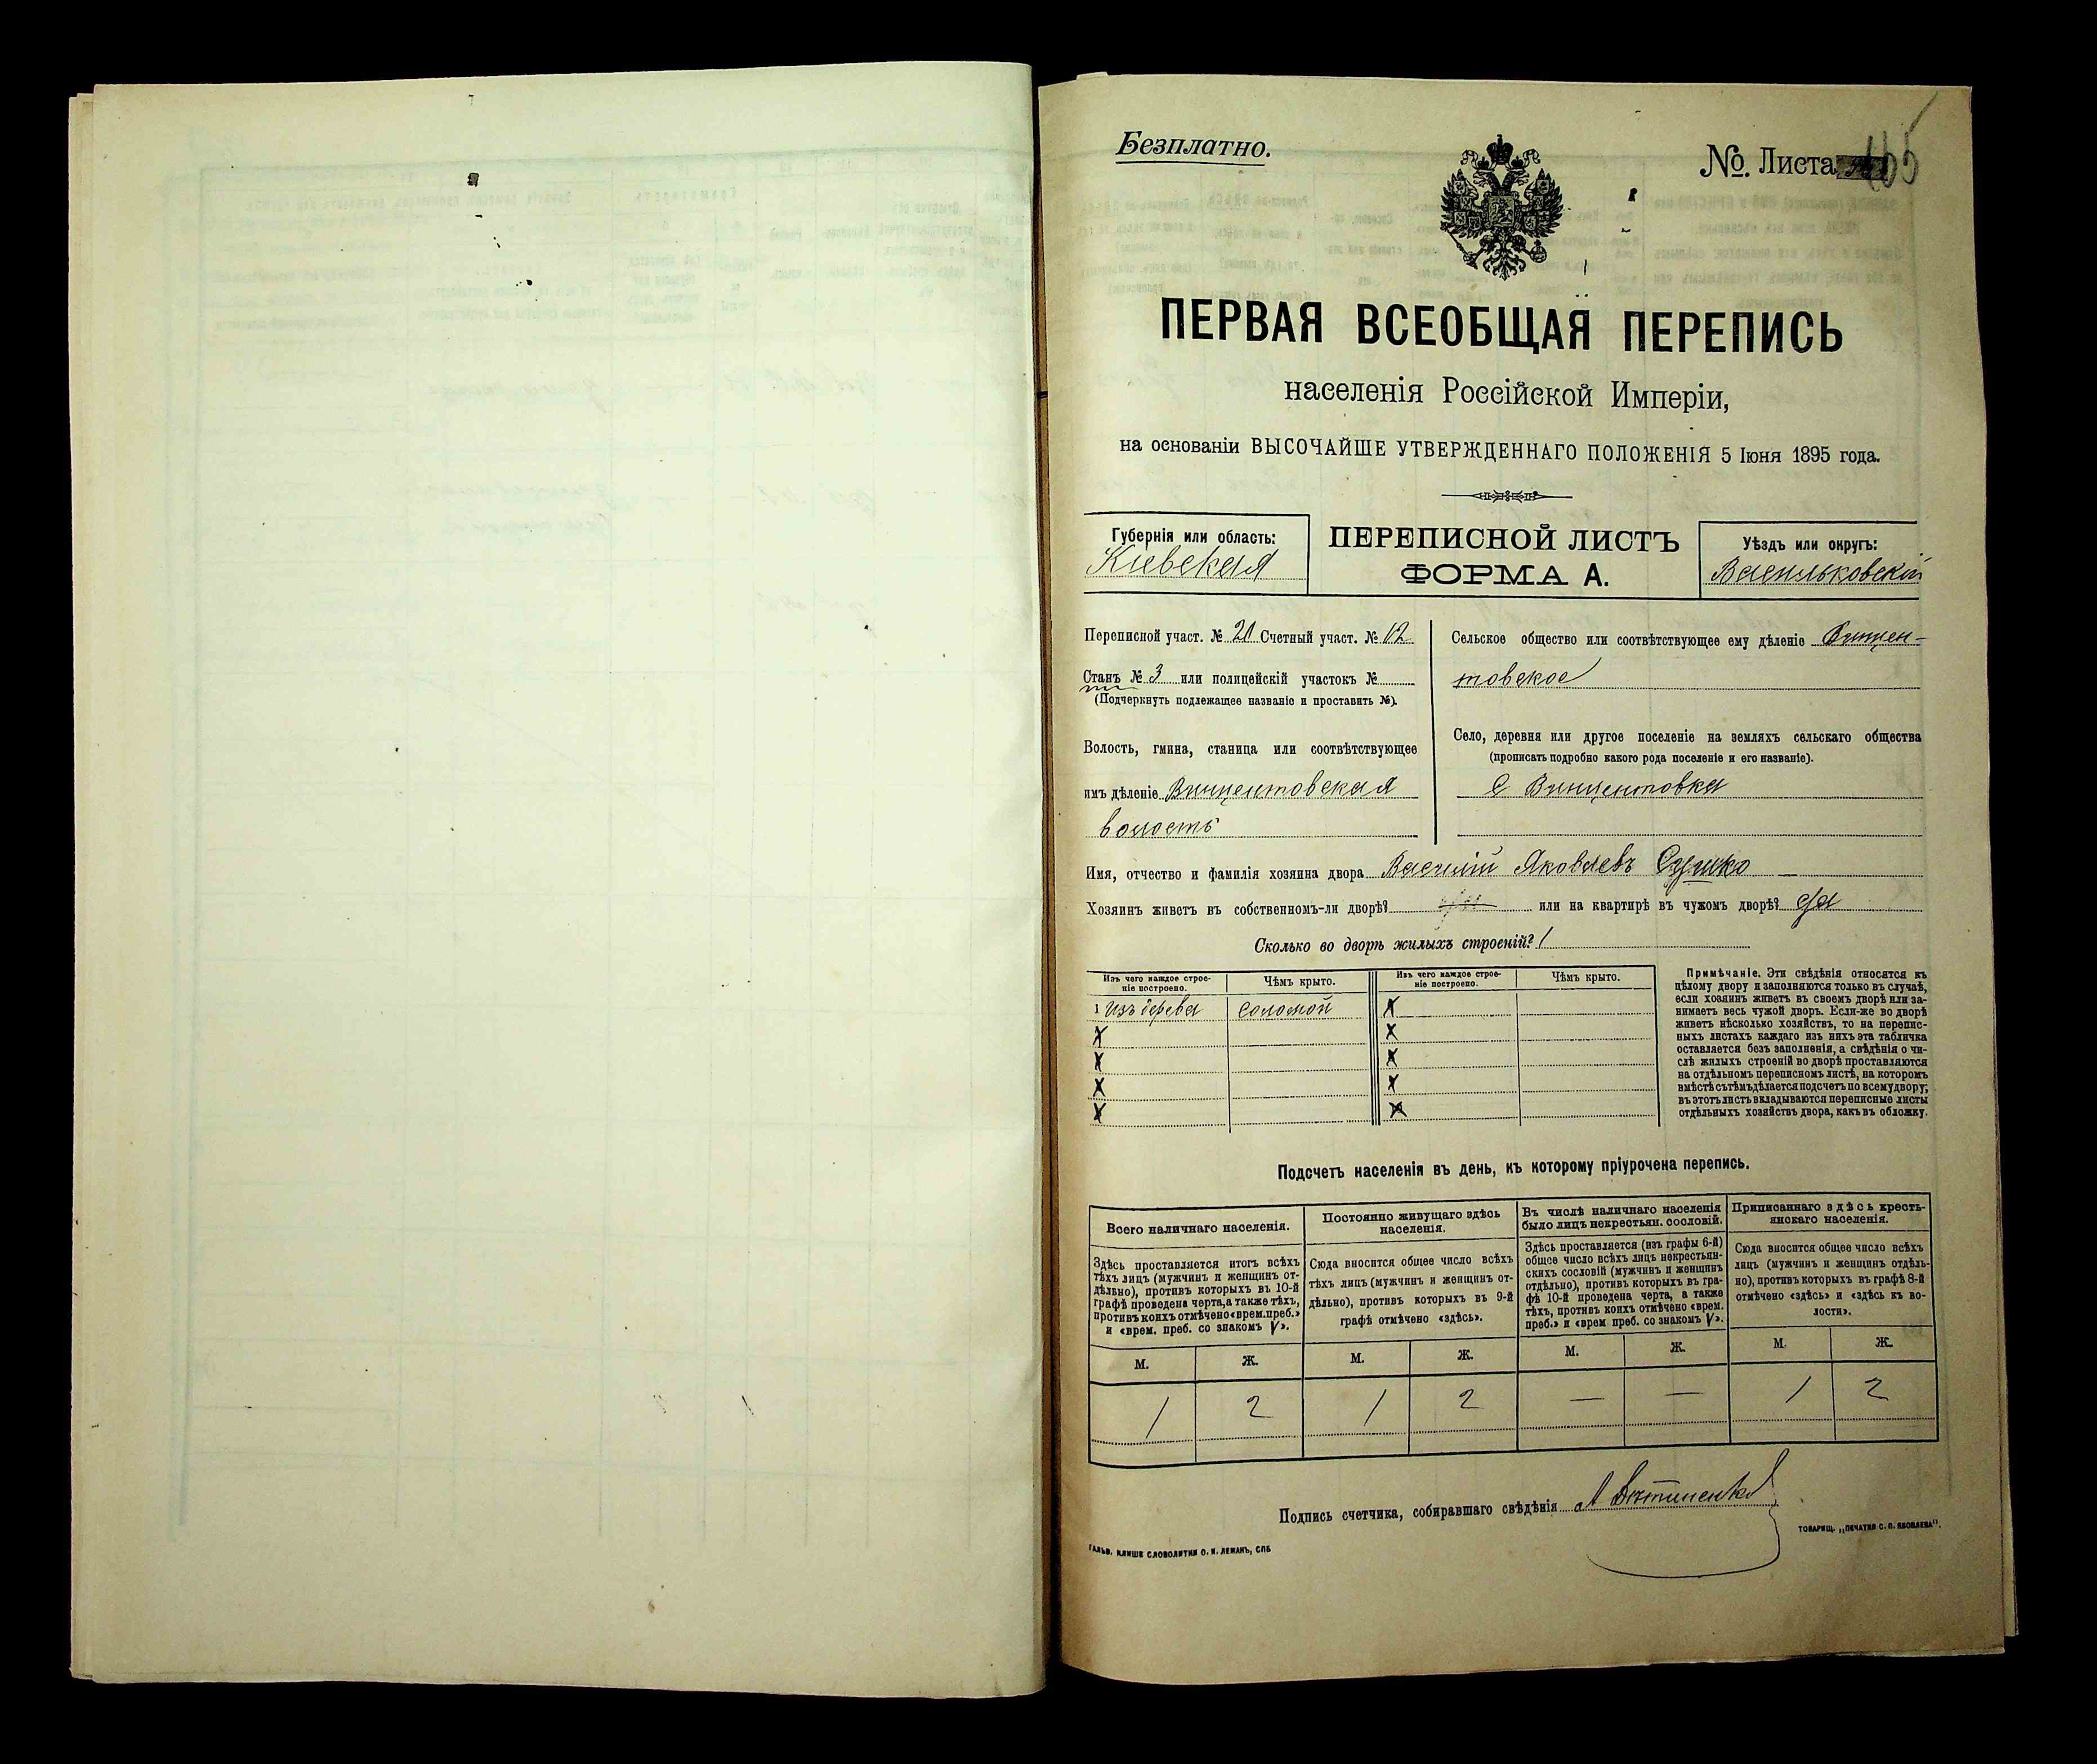 Безплатно.
№. Листа 165
ПЕРВАЯ ВСЕОБЩАЯ ПЕРЕПИСЬ
населенія Россійской Имперіи,
на основаніи ВЫСОЧАЙШЕ УТВЕРЖДЕННАГО ПОЛОЖЕНІЯ 5 Іюня 1895 года.
Губернія или область:
Кіевская
ПЕРЕПИСНОЙ ЛИСТЪ
ФОРМА А.
Уѣздъ или округъ:
Васильковскій
Переписной участ. № 21 Счетный участ. № 12
Станъ № 3 или полицейскій участокъ №
(Подчеркнуть подлежащее названіе и проставить №).
Волость, гмина, станица или соотвѣтствующее
имъ дѣленіе Винцентовская
волость
Сельское общество или соотвѣтствующее ему дѣленіе Винцен-
товское
Село, деревня или другое поселеніе на земляхъ сельскаго общества
(прописать подробно какого рода поселеніе и его названіе).
С Винцентовка
Имя, отчество и фамилія хозяина двора Василій Яковлевъ Сушко
Хозяинъ живетъ въ собственномъ-ли дворѣ? или на квартирѣ въ чужомъ дворѣ? да
Сколько во дворѣ жилыхъ строеній? 1
Изъ чего каждое строе-
ніе построено.
Чѣмъ крыто.
Изъ чего каждое строе-
ніе построено.
Чѣмъ крыто.
1 изъ дерева соломой
Примѣчаніе. Эти свѣдѣнія относятся къ
цѣлому двору и заполняются только въ случаѣ,
если хозяинъ живетъ въ своемъ дворѣ или за-
нимаетъ весь чужой дворъ. Если-же во дворѣ
живетъ нѣсколько хозяйствъ, то на перепис-
ныхъ листахъ каждаго изъ нихъ эта табличка
оставляется безъ заполненія, а свѣдѣнія о чи-
слѣ жилыхъ строеній во дворѣ проставляются
на отдѣльномъ переписномъ листѣ, на которомъ
вмѣстѣ съ тѣмъ дѣлается подсчетъ по всему двору;
въ этотъ листъ вкладываются переписные листы
отдѣльныхъ хозяйствъ двора, какъ въ обложку.
Подсчетъ населенія въ день, къ которому пріурочена перепись.
Всего наличнаго населенія.
Здѣсь проставляется итогъ всѣхъ
тѣхъ лицъ (мужчинъ и женщинъ от-
дѣльно), противъ которыхъ въ 10-й
графѣ проведена черта, а также тѣхъ,
противъ коихъ отмѣчено «врем. преб.»
и «врем. преб. со знакомъ V».
Постоянно живущаго здѣсь
населенія.
Сюда вносится общее число всѣхъ
тѣхъ лицъ (мужчинъ и женщинъ от-
дѣльно), противъ которыхъ въ 9-й
графѣ отмѣчено «здѣсь».
Въ числѣ наличнаго населенія
было лицъ некрестьян. сословій.
Здѣсь проставляется (изъ графы 6-й)
общее число всѣхъ лицъ некрестьян-
скихъ сословій (мужчинъ и женщинъ
отдѣльно), противъ которыхъ въ гра-
фѣ 10-й проведена черта, а также
тѣхъ, противъ коихъ отмѣчено «врем.
преб.» и «врем преб. со знакомъ V».
Приписаннаго здѣсь кресть-
янскаго населенія.
Сюда вносится общее число всѣхъ
лицъ (мужчинъ и женщинъ отдѣль-
но), противъ которыхъ въ графѣ 8-й
отмѣчено «здѣсь» и «здѣсь къ во-
лости».
М. Ж. М. Ж. М. Ж. М. Ж.
1 2 1 2 — — 1 2
Подпись счетчика, собиравшаго свѣдѣнія
ГАЛЬВ. КЛИШЕ СЛОВОЛИТНИ О. И. ЛЕМАНЪ, СПБ
ТОВАРИЩ. „ПЕЧАТНЯ С. П. ЯКОВЛЕВА".